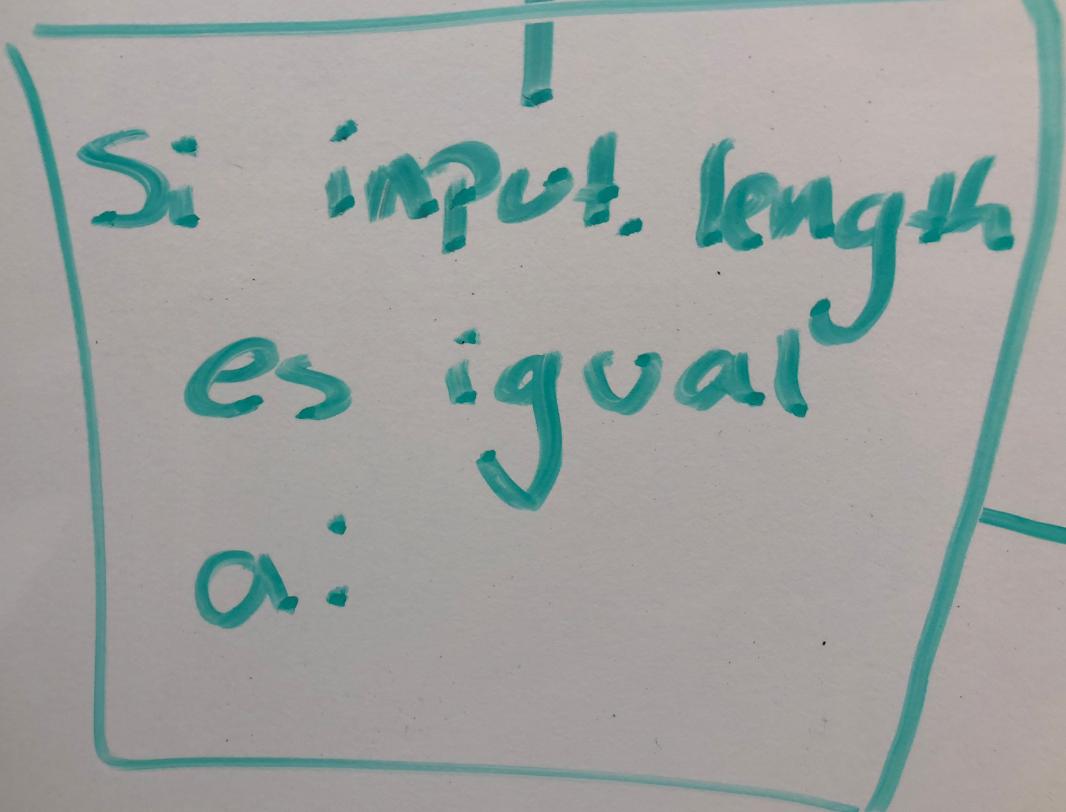 Si input.length
es igual
a: